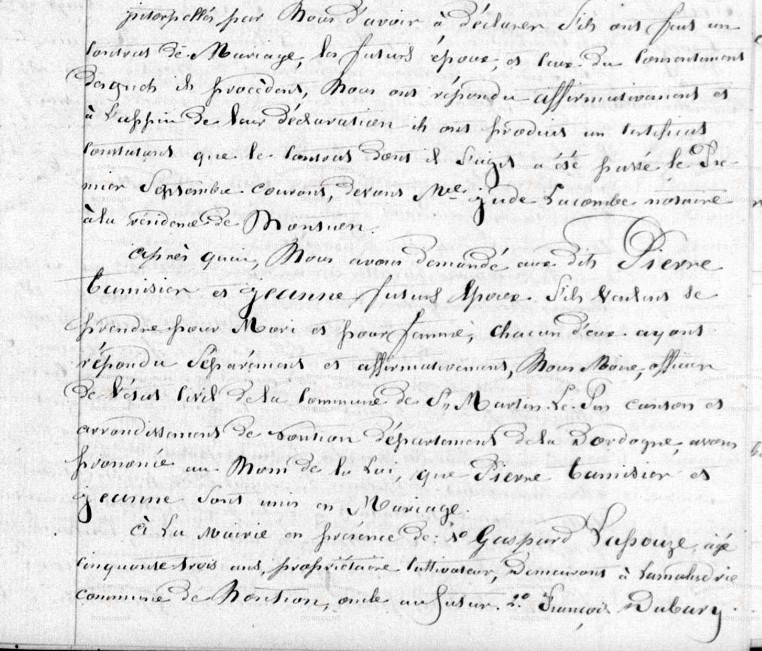 interpellés par Nous d'avoir à déclarer s'ils ont fait un
contrat de Mariage, les futurs époux, et ceux du consentement
desquels ils procèdent, Nous ont répondu affirmativement et
à l'appui de leur déclaration ils ont produit un certificat
constatant que le contrat dont il s'agit a été passé le Pre
mier Septembre courant, devant Me Jude Lacombe notaire
à la résidence de
Après quoi, Nous avons demandé aux dits Pierre
tamisier et Jeanne futurs époux s'ils veulent se
prendre pour Mari et pour femme, chacun d'eux ayant
répondu séparément et affirmativement, Nous Maire, officier
de l'état civil de la commune de St Martin Le Pin canton et
arrondissement de Nontron département de la Dordogne, avons
prononcé au Nom de la Loi, que Pierre tamisier et
Jeanne sont unis en Mariage.
à La Mairie en présence de: 1o Gaspard Lapouze, âgé
cinquante trois ans, propriétaire cultivateur, demeurant à Lamaladrie
commune de Nontron, oncle au futur. 2o François Dubary